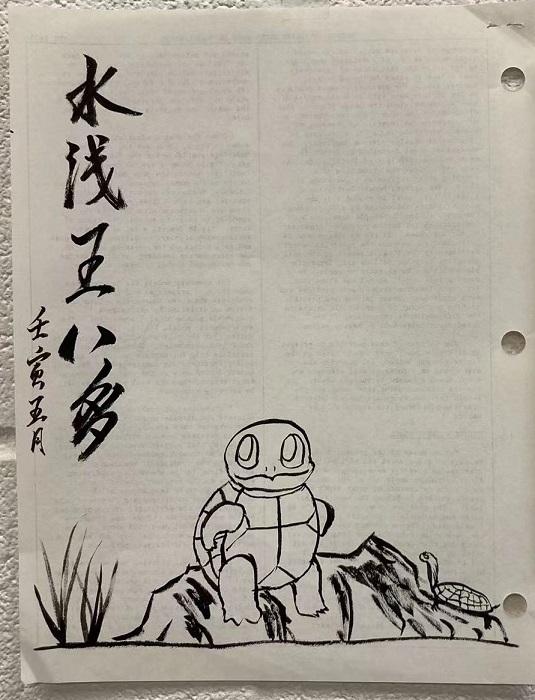 水浅王八多
壬寅五月